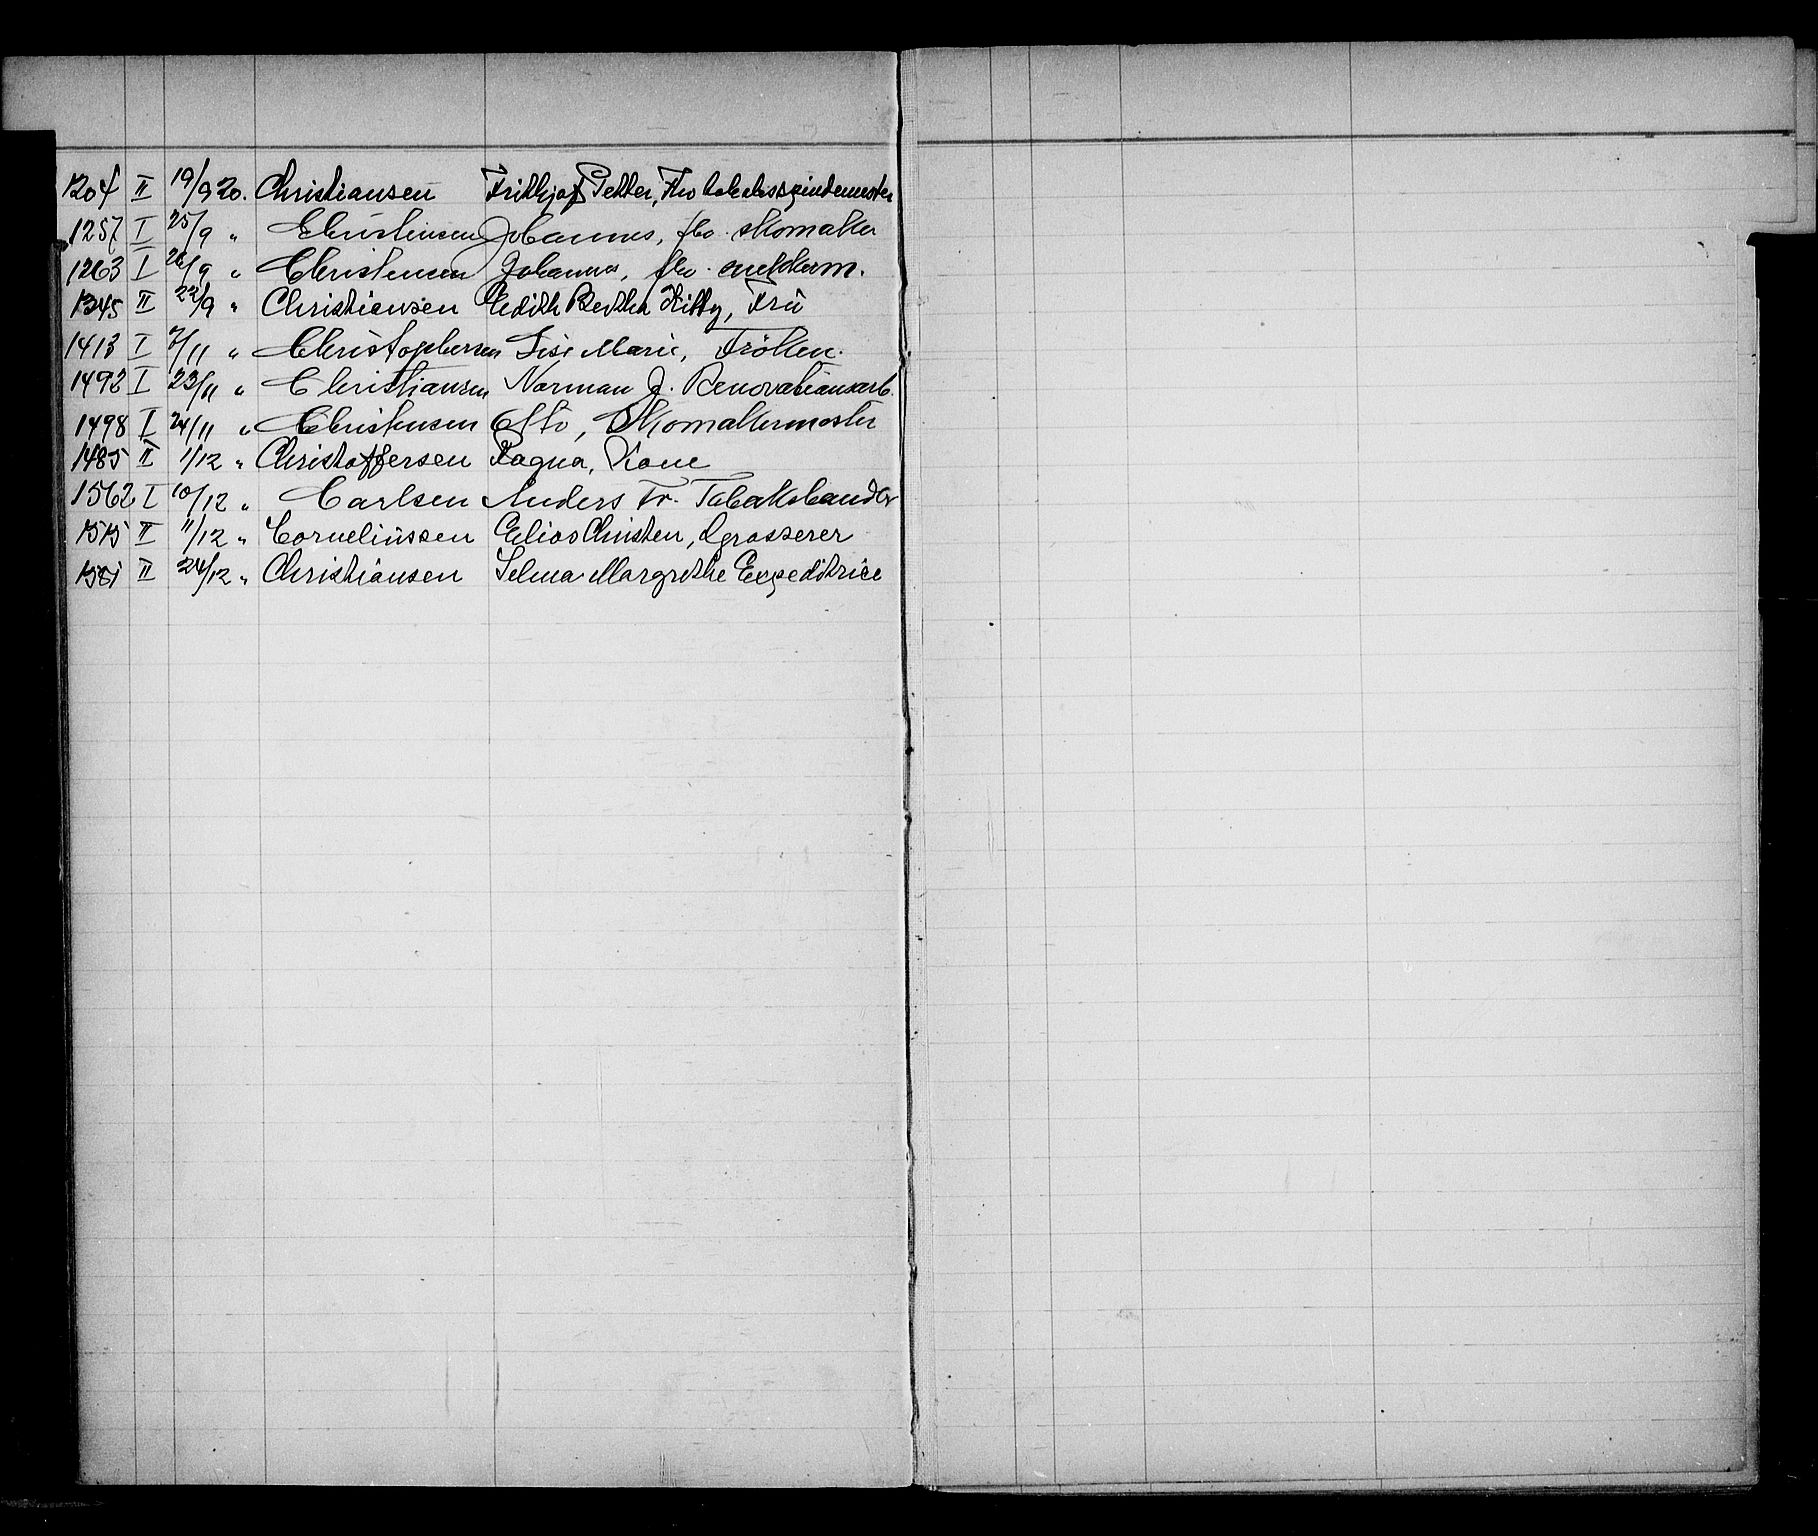 1204 II 19/9 20. Christiansen Frithjof Petter, Fhv tobaksspindemester
1257 I 25/9 " Christensen Johannes, fhv. skomaker
1263 I 26/9 " Christensen Johannes, fhv.
1345 II 22/9 " Christiansen Edith Bertha Kitty, Frü
1413 I 7/11 " Christophersen Lise Marie, Fröken.
1492 I 23/11 " Christiansen Norman J. Renovationsarb.
1498 I 24/11 " Christensen Otto, Skomakermester
1485 II 1/12 " Christoffersen Ragna, Kone
1562 I 10/12 " Carlsen Anders Fr. Tobakshandler
1515 II 11/12 " Corneliussen Elias Christen, Grosserer
1581 II 24/12 " Christiansen Selma Margrethe Expeditrice